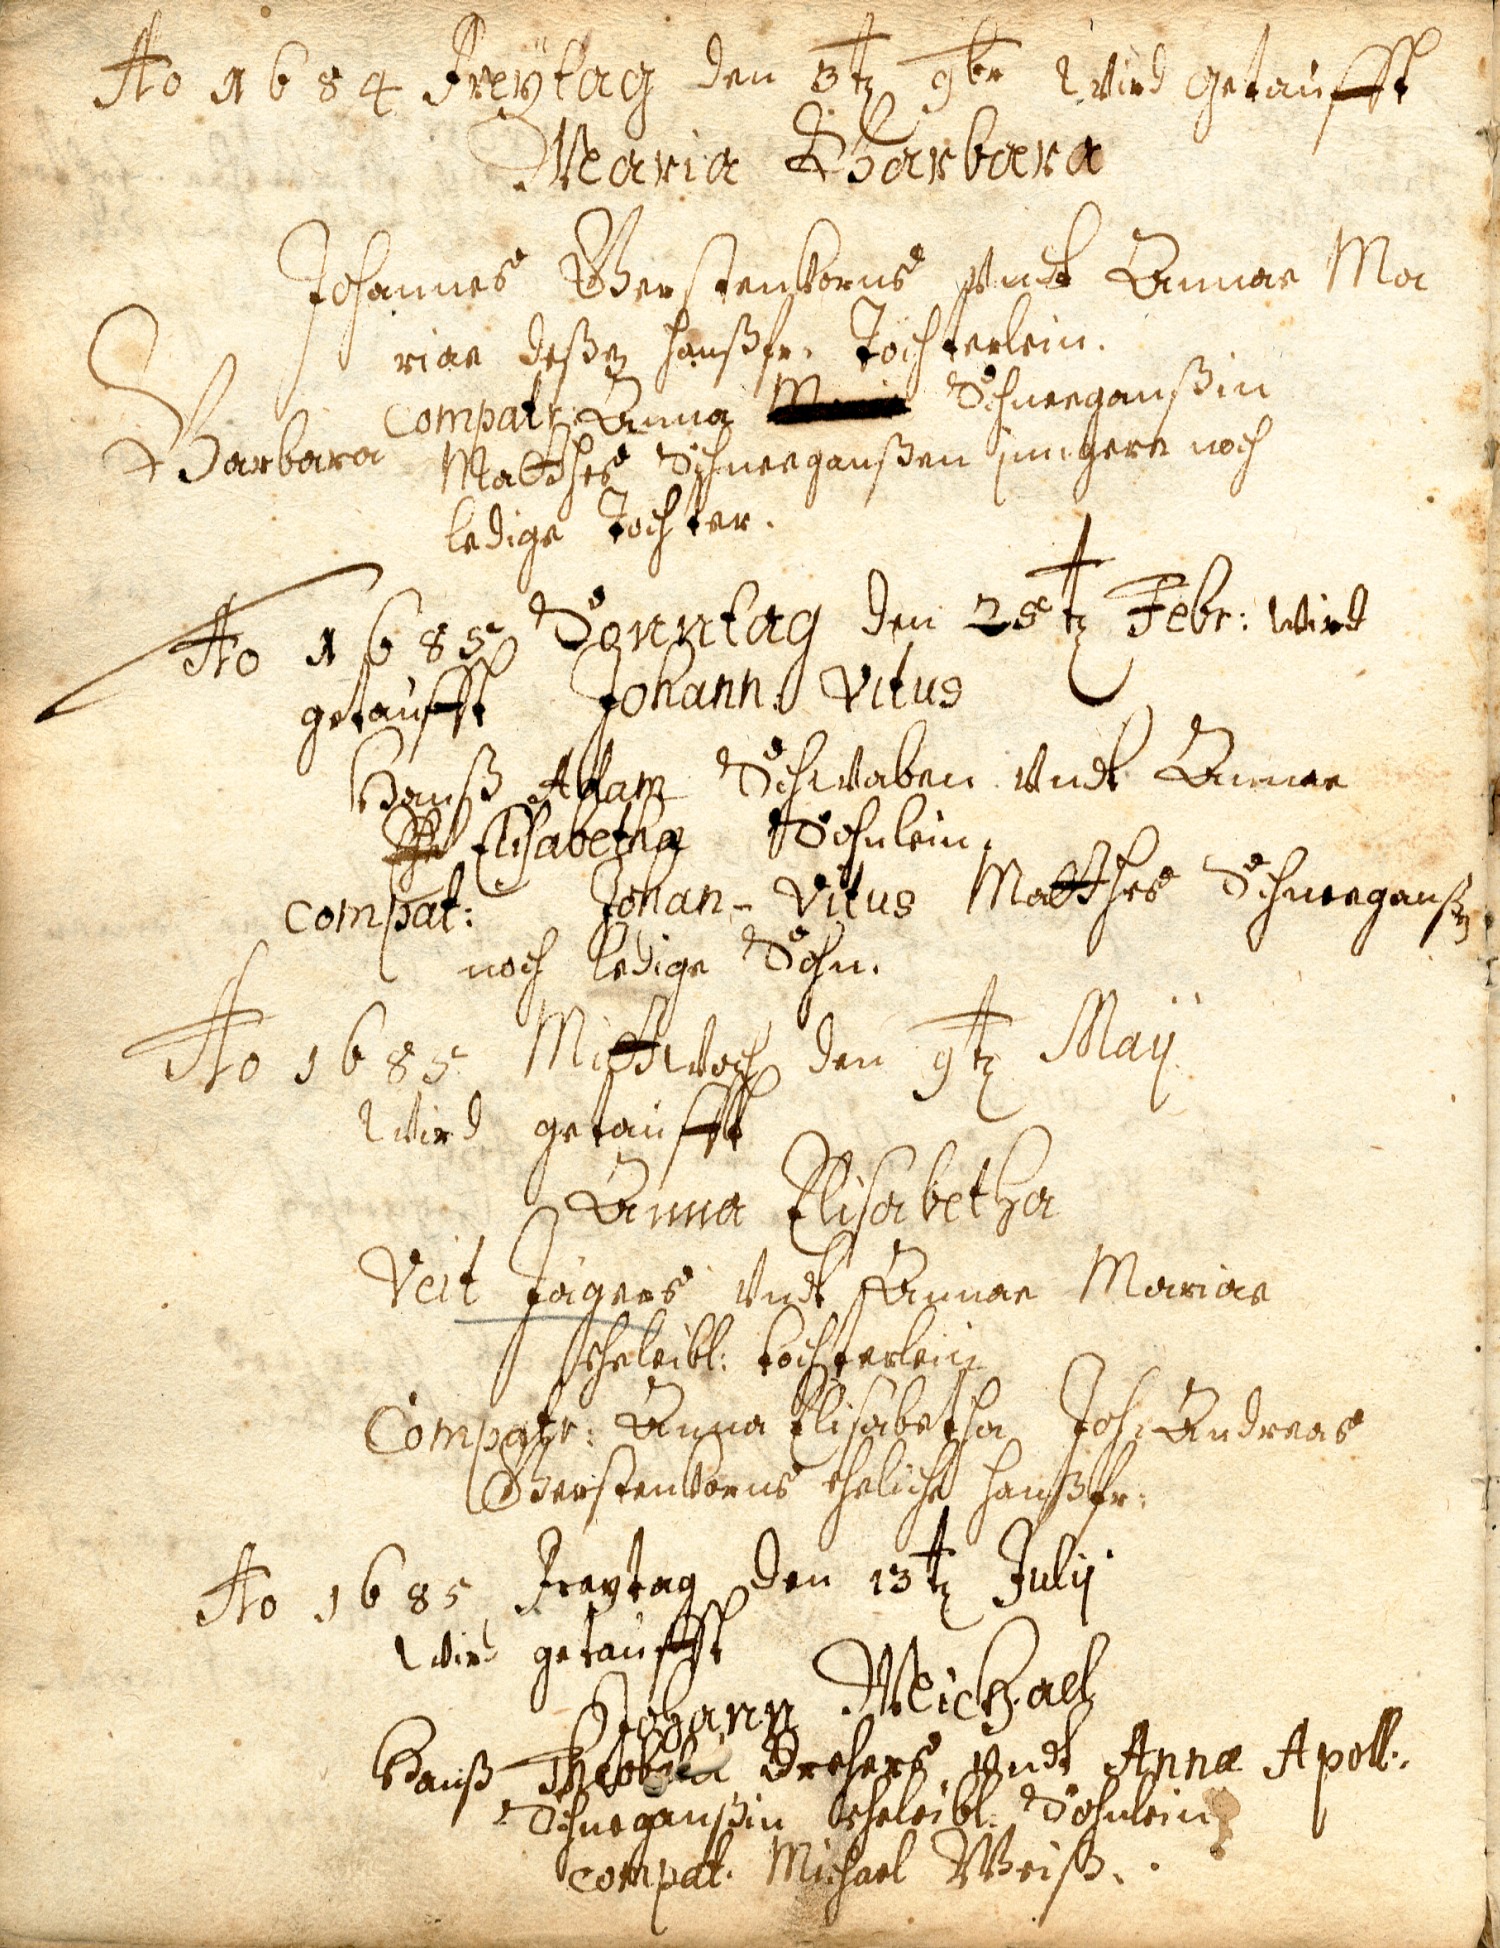 Ao 1684 Freÿtag den 3t 9br wird getaufft
Maria Barbara
Johannes Gerstenkorns undt Annae Ma
riae deßen haußfr. Töchterlein.
Compatr: Anna Schneeganßin
Barbara Matthes Schneeganßen jüngere noch
ledige Tochter.
Ao 1685 Sonntag den 25t Febr: wird
getaufft Johann: Vitus
Hanß Adam Schwaben undt Annae
Elisabetha Söhnlein.
Compat: Johan- Vitus Matthes Schneeganßen
noch ledige Sohn.
Ao 1685 Mittwoch den 9t Maij
wird getaufft
Anna Elisabetha
Veit Jägers undt Annae Mariae
eheleibl: töchterlein
Compatr: Anna Elisabetha Joh: Andreas
Gerstenkorns eheliche haußfr:
Ao 1685 Freytag den 13t Julij
wird getaufft
Johann Meichael
Hanß Theobald Drehers undt Annæ Apoll:
Schneganßin eheleibl: Söhnlein
compat. Michael Weiß.